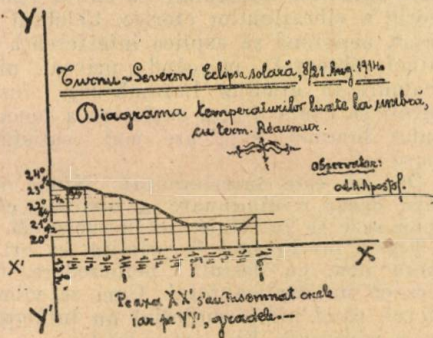 Y
Turnu-Severin. Eclipsa solară, 8/21 Aug. 1914.
Diagrama temperaturilor luate la umbră,
cu term. Réaumur.
Observator:
24°
23°
22°
21°
20°
X' X
Pe axa XX' s'au însemnat orele
iar pe YY', gradele.--
Y'